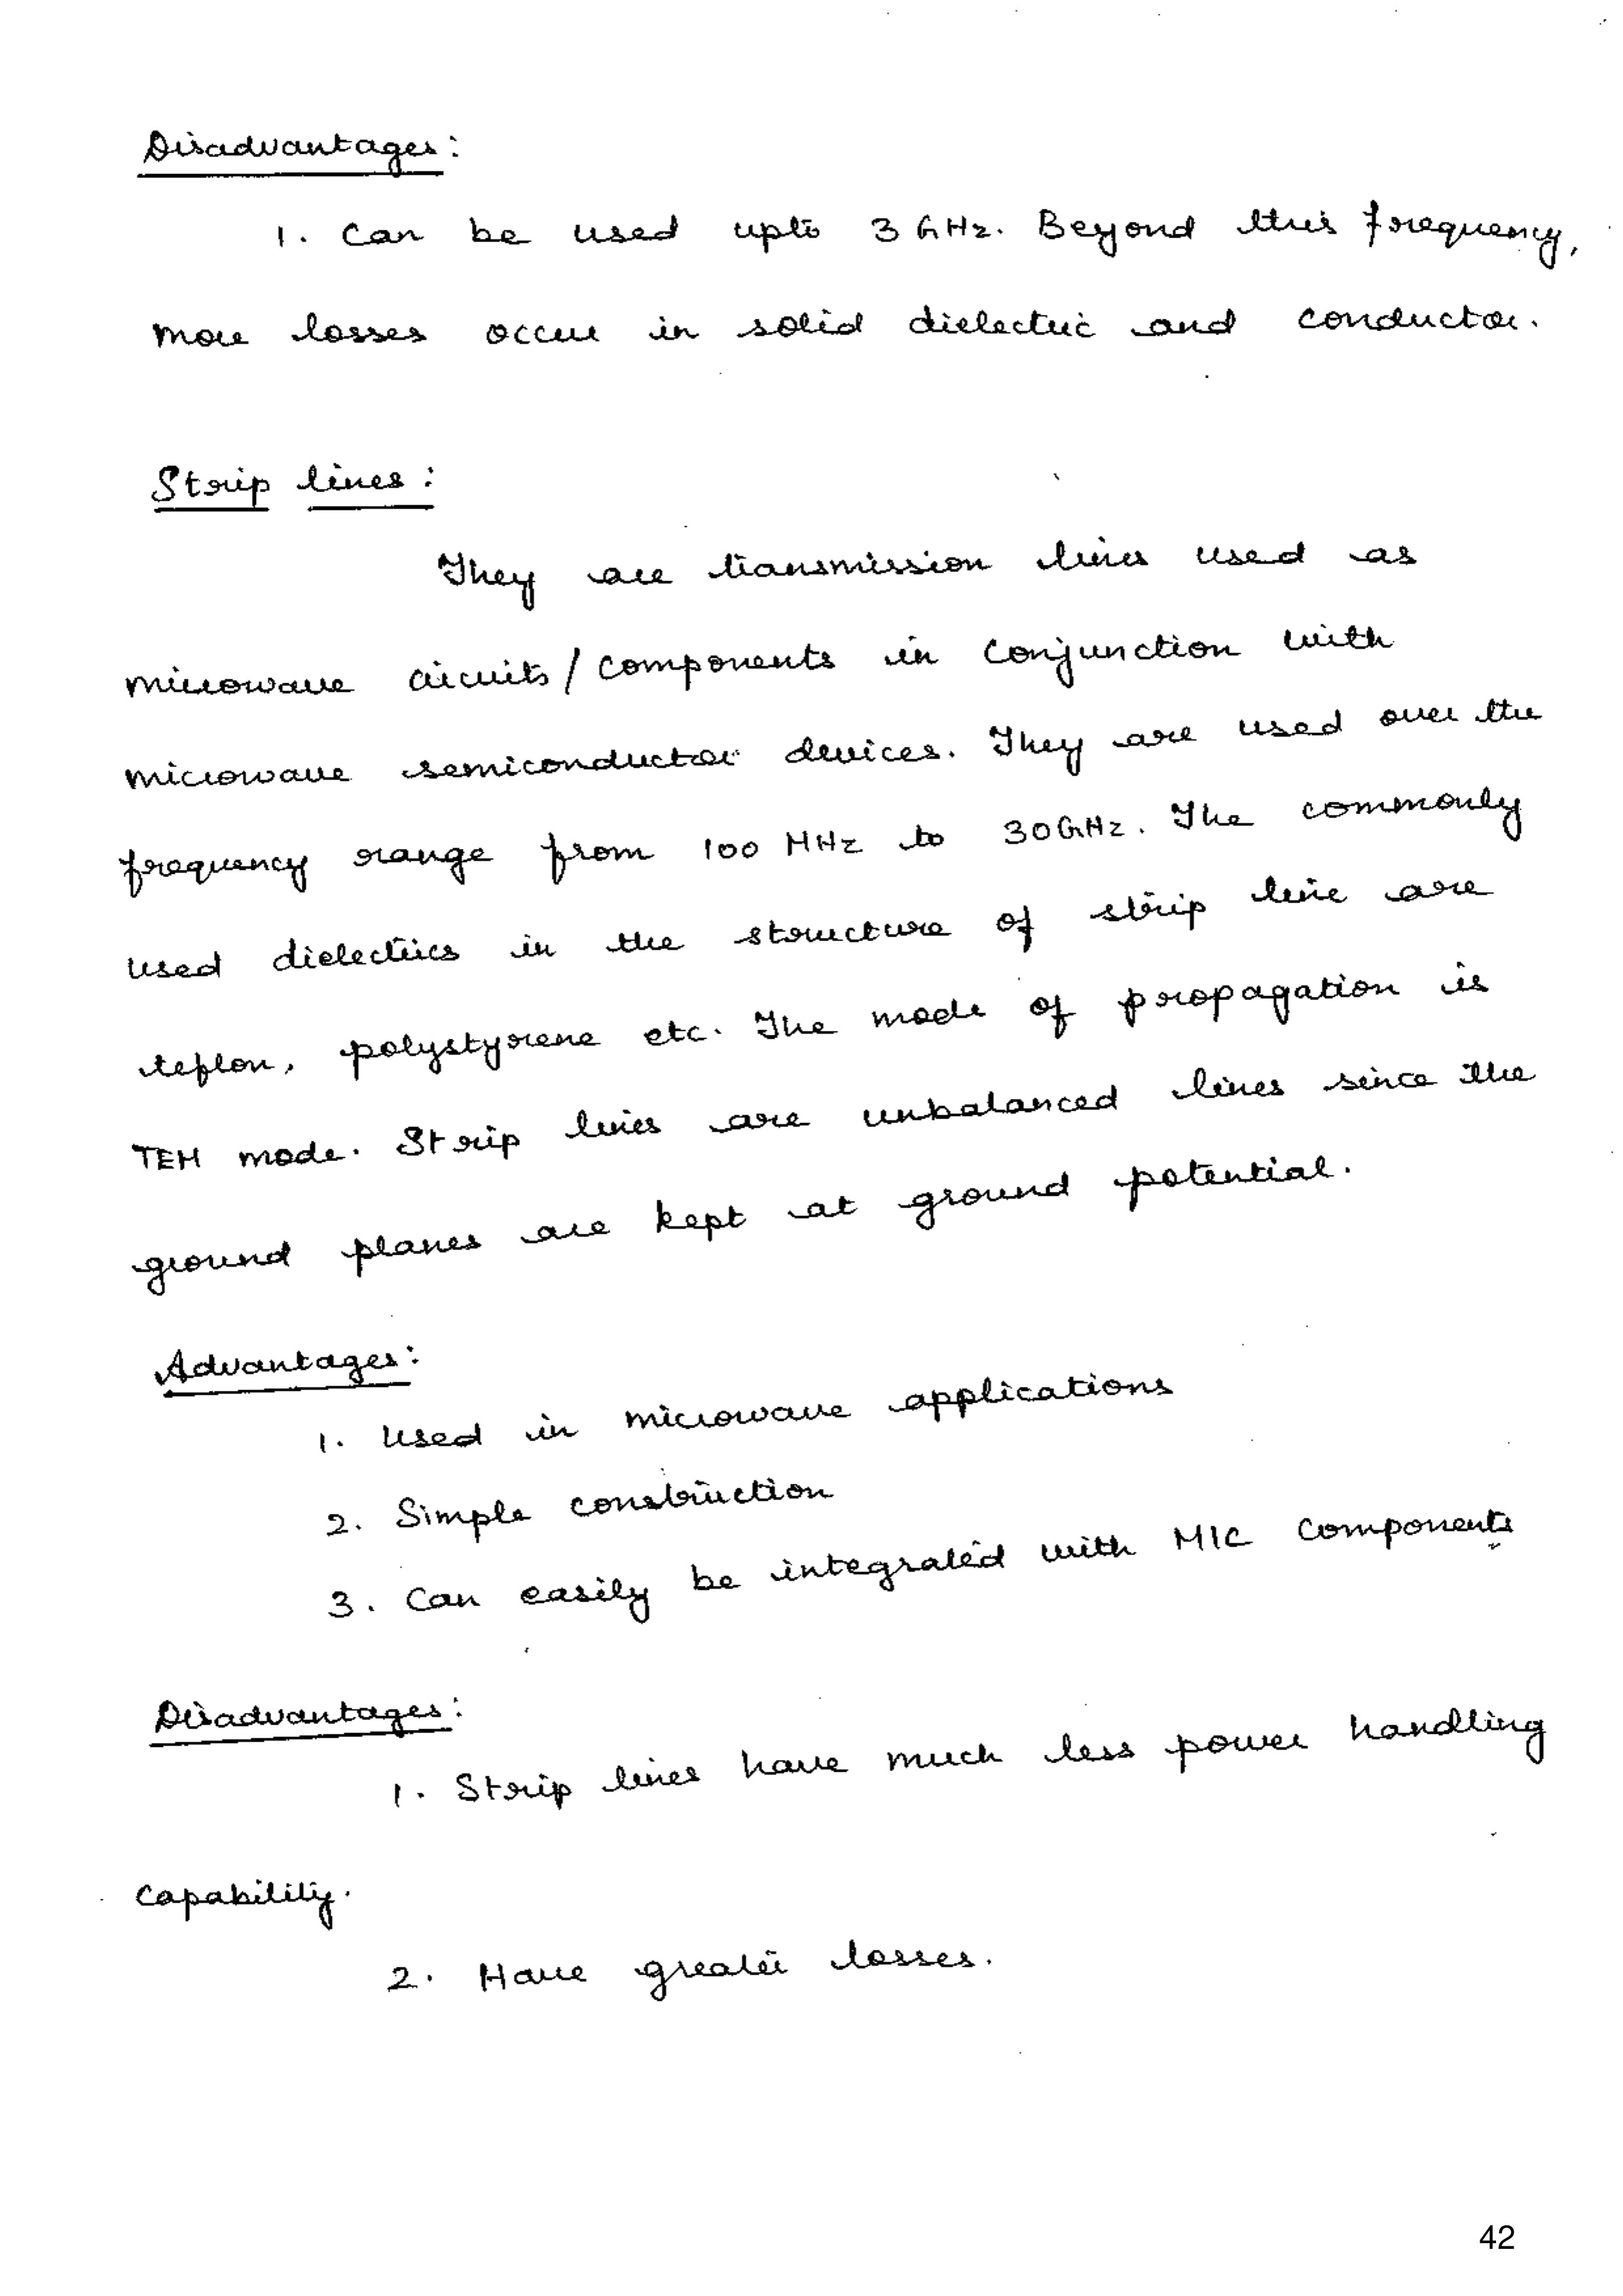 Disadvantages:
1. Can be used upto 3 GHz. Beyond this frequency,
more losses occur in solid dielectric and conductor.
Strip lines:
They are transmission lines used as
microwave circuits/components in conjunction with
microwave semiconductor devices. They are used over the
frequency range from 100 MHz to 30GHz. The commonly
used dielectrics in the structure of strip line are
teflon, polystyrene etc. The mode of propagation is
TEM mode. Strip lines are unbalanced lines since the
ground planes are kept at ground potential.
Advantages:
1. Used in microwave applications
2. Simple construction
3. Can easily be integrated with MIC components
Disadvantages:
1. Strip lines have much less power handling
capability.
2. Have greater losses.
42